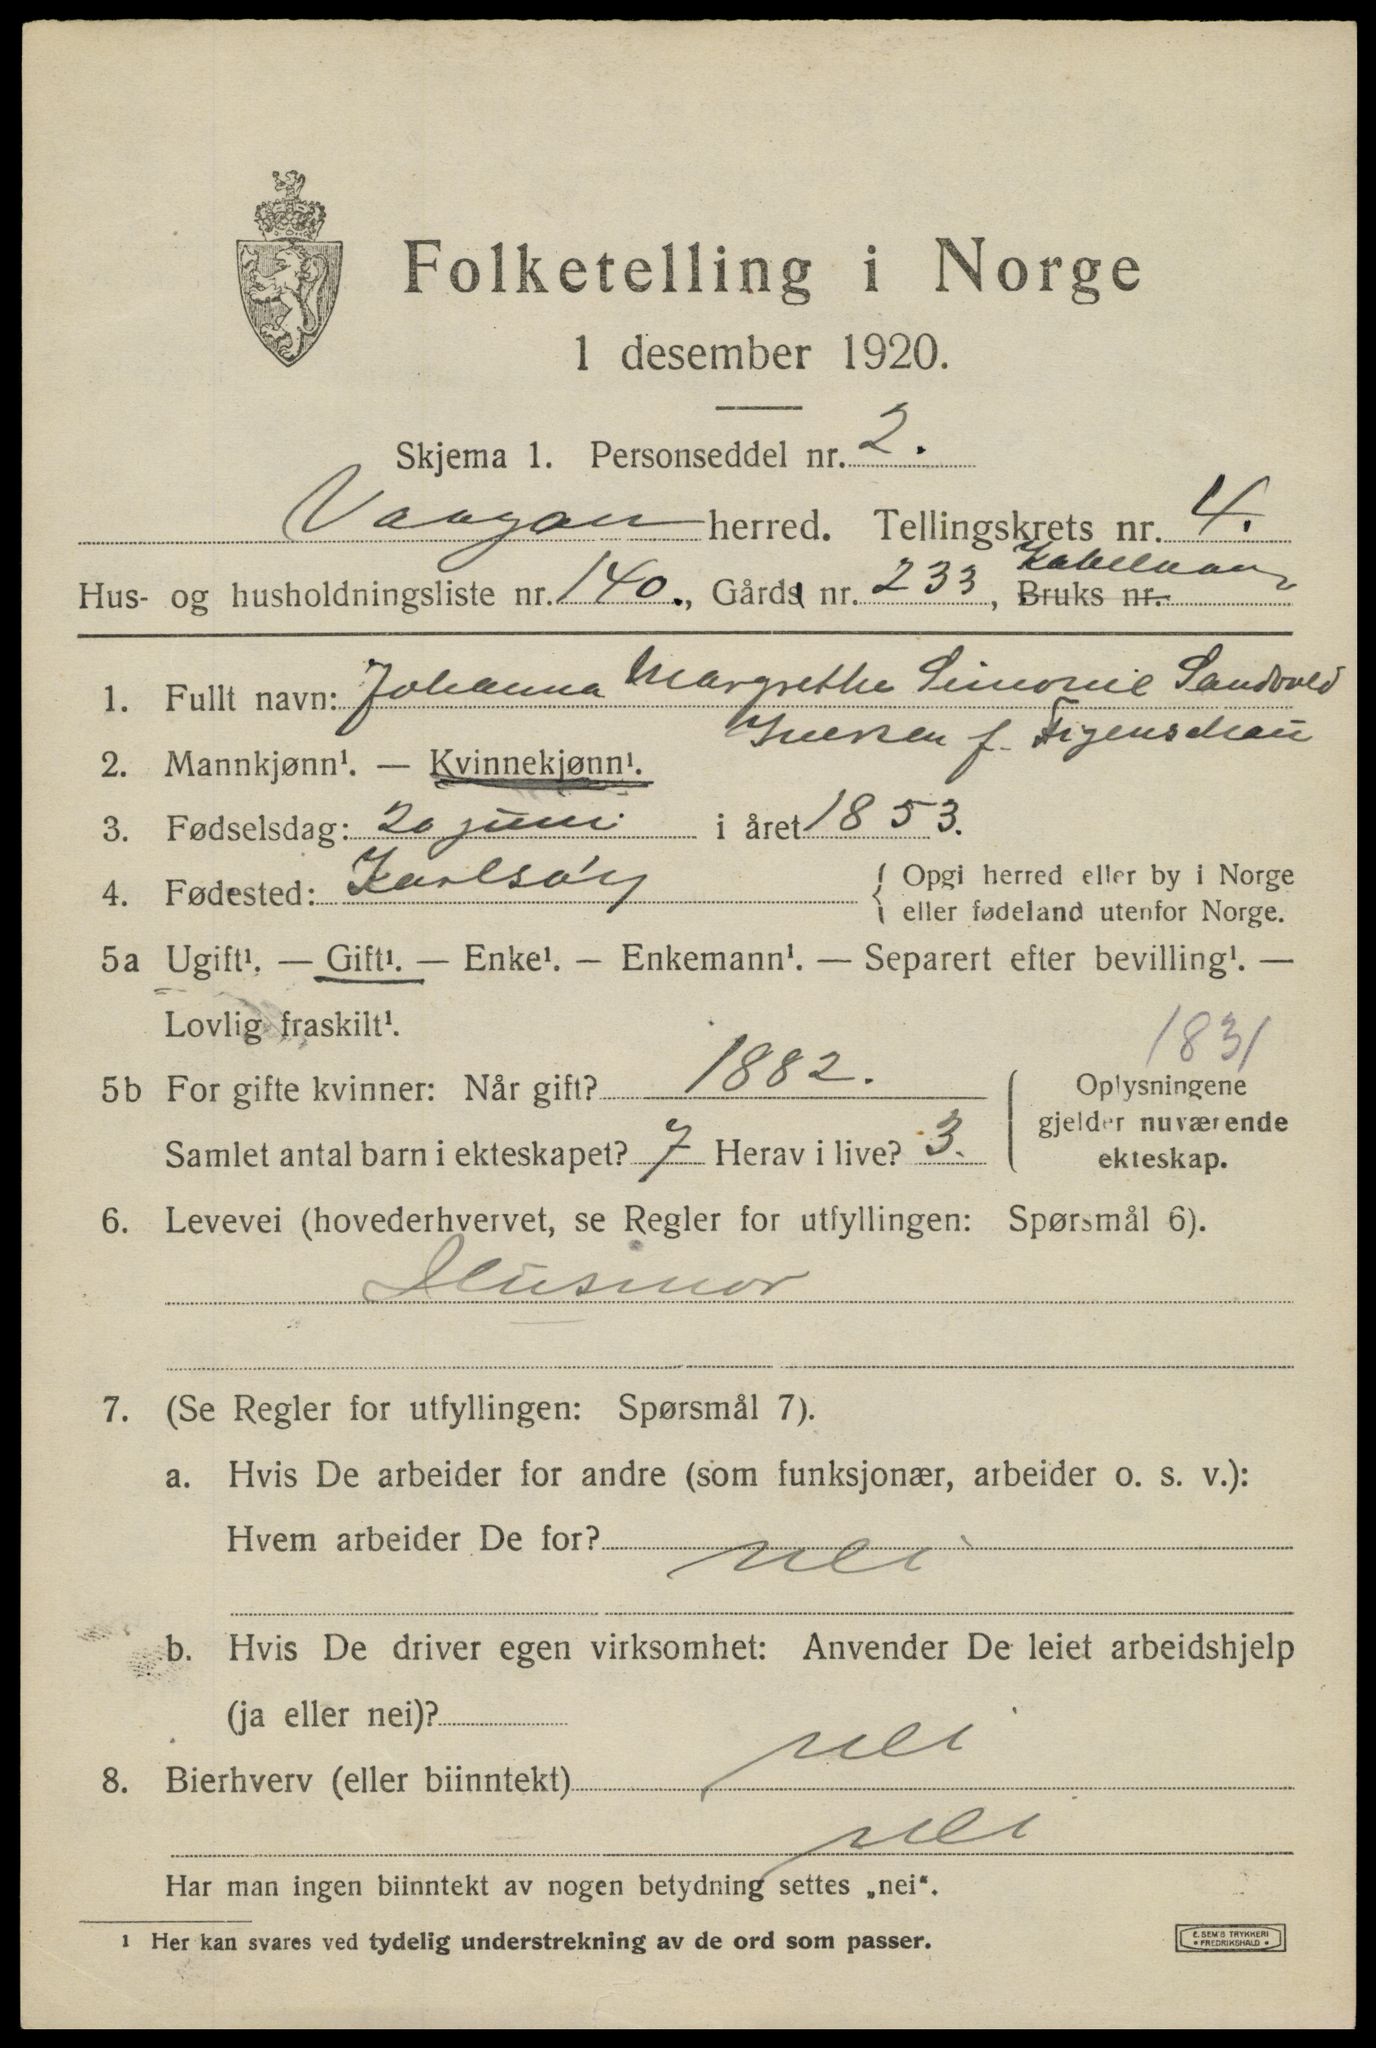 Folketelling i Norge
1 desember 1920.
Skjema 1. Personseddel nr. 2.
Vaagan herred. Tellingskrets nr. 4.
Hus- og husholdningsliste nr. 140., Gårds nr. 233, Bruks nr. Kabelvaag
1. Fullt navn: Johanna Margrethe Simonie Sandvold
Iversen f. Figenschau
2. Mannkjønn¹. — Kvinnekjønn¹.
3. Fødselsdag: 20 juni i året 1853.
4. Fødested: Karlsöy { Opgi herred eller by i Norge
eller fødeland utenfor Norge.
5a Ugift¹. — Gift¹. — Enke¹. — Enkemann¹. — Separert efter bevilling¹. —
Lovlig fraskilt¹.
1831
5b For gifte kvinner: Når gift? 1882. Oplysningene
gjelder nuværende
Samlet antal barn i ekteskapet? 7 Herav i live? 3. ekteskap.
6. Levevei (hovederhvervet, se Regler for utfyllingen: Spørsmål 6).
Husmor
7. (Se Regler for utfyllingen: Spørsmål 7).
a. Hvis De arbeider for andre (som funksjonær, arbeider o. s. v.):
Hvem arbeider De for? nei
b. Hvis De driver egen virksomhet: Anvender De leiet arbeidshjelp
(ja eller nei)? nei
8. Bierhverv (eller biinntekt)
nei
Har man ingen biinntekt av nogen betydning settes „nei“.
¹ Her kan svares ved tydelig understrekning av de ord som passer.
E. SEM'S TRYKKERI
• FREDRIKSHALD •